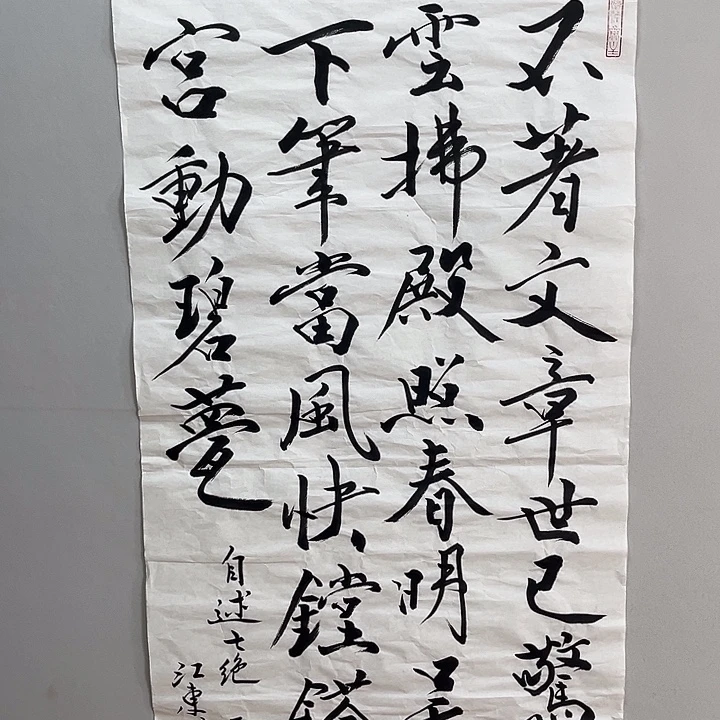 不著文章世已驚
雲拂殿照春明
下筆當風快鏜
宮動碧甍
自述七絕
江東